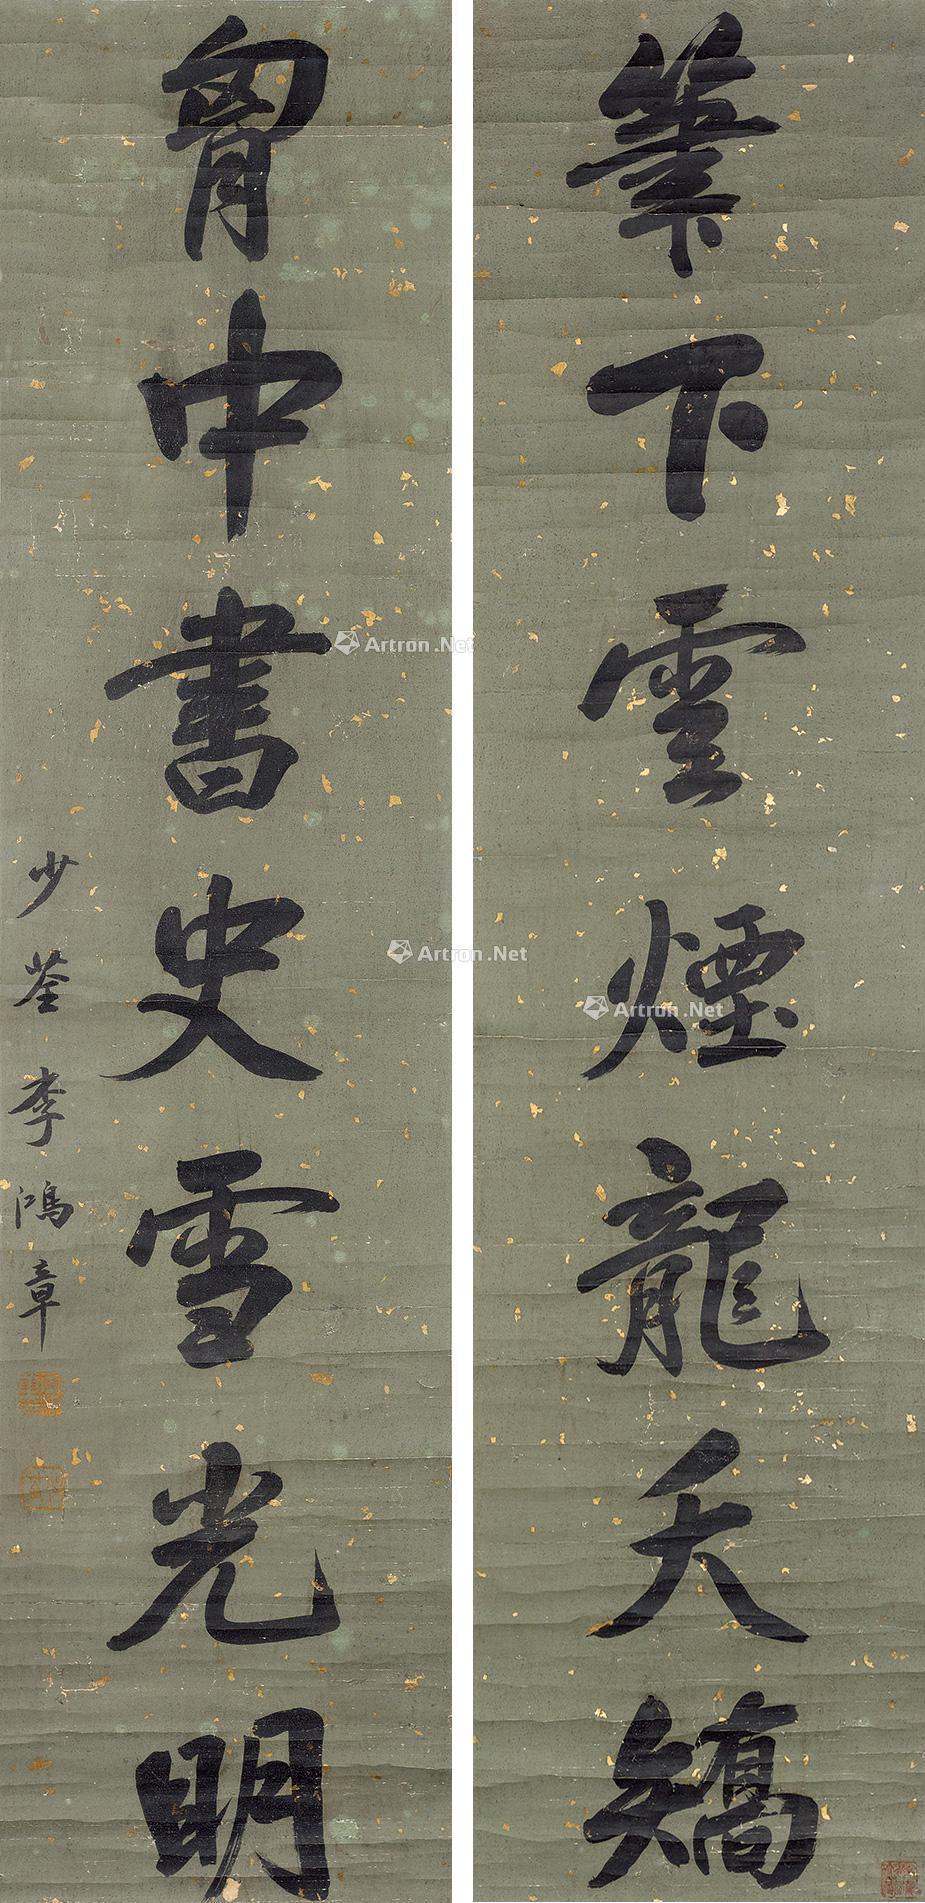 筆下雲煙龍夭矯
胷中書史雪光明
少荃李鴻章
Artron.Net
Artron.Net
Artron.Net